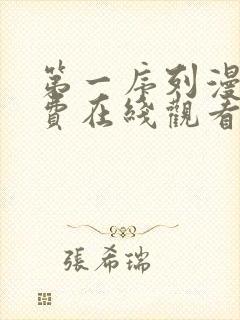 第一序列漫
費在綫觀看
張希瑞